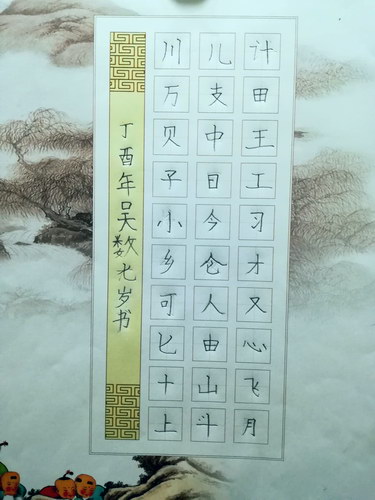 计田王工习才又心飞月
儿支中日今仓人由山斗
川万贝子小乡可匕十上
丁酉年吴数岁书